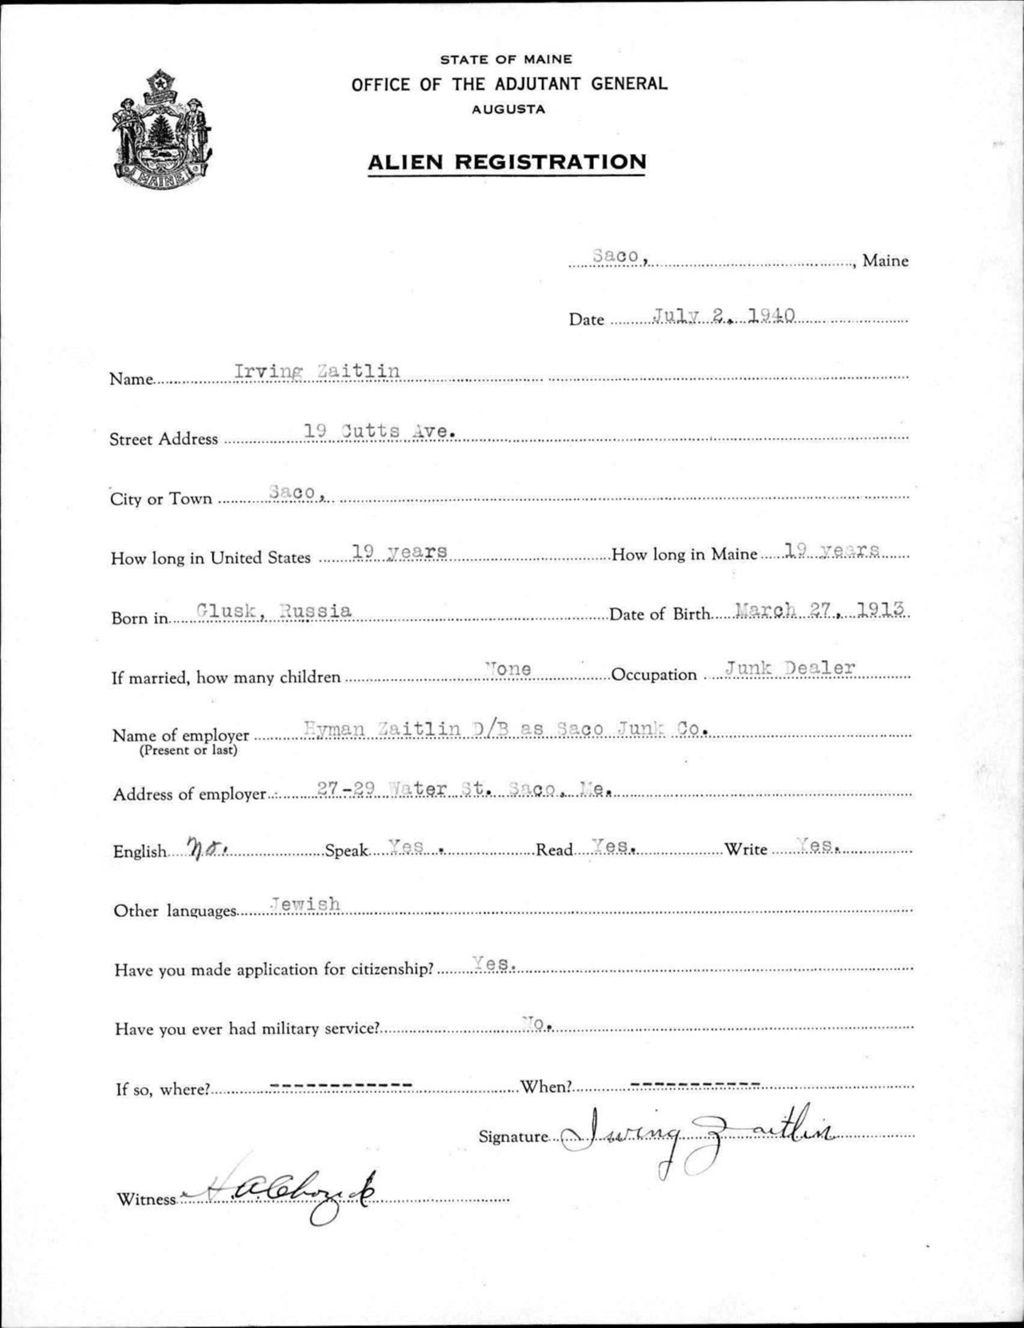 STATE OF MAINE
OFFICE OF THE ADJUTANT GENERAL
AUGUSTA
ALIEN REGISTRATION
MAINE
Saco, , Maine
Date July 2, 1940
Name Irving Zaitlin
Street Address 19 Cutts Ave.
City or Town Saco,
How long in United States 19 years How long in Maine 19 years
Born in Glusk, Russia Date of Birth March 27, 1913
If married, how many children None Occupation Junk Dealer
Name of employer Hyman Zaitlin D/B as Saco Junk Co.
(Present or last)
Address of employer 27-29 Water St. Saco, Me.
English No. Speak Yes. Read Yes. Write Yes.
Other languages Jewish
Have you made application for citizenship? Yes.
Have you ever had military service? No.
If so, where? ------------- When? ------------
Signature Irving Zaitlin
Witness H.A.